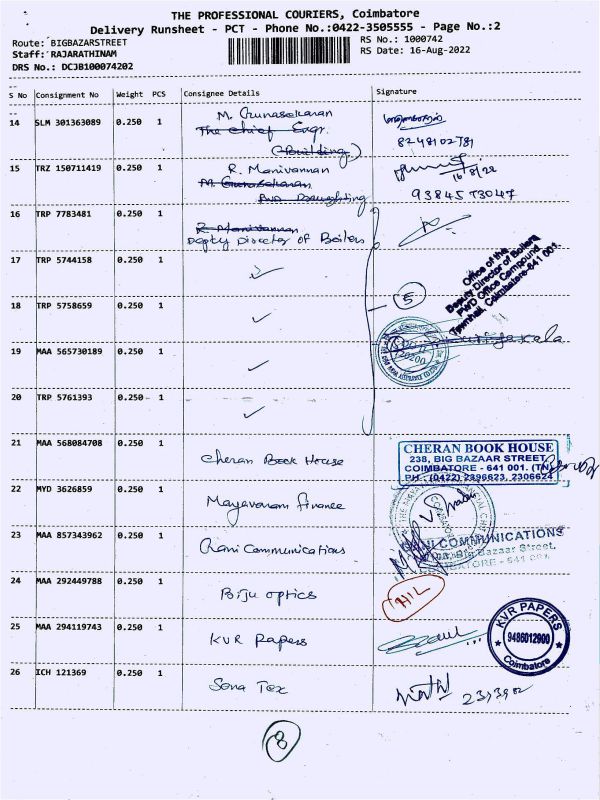 THE PROFESSIONAL COURIERS, Coimbatore
Delivery Runsheet - PCT - Phone No.:0422-3505555 - Page No.:2
Route: BIGBAZARSTREET
RS No.: 1000742
Staff: RAJARATHINAM
RS Date: 16-Aug-2022
DRS No.: DCJB100074202
S No Consignment No Weight PCS Consignee Details Signature
14 SLM 301363089 0.250 1 M. Gunasekaran
The Chief Engr.
(Building)
8248102781
15 TRZ 150711419 0.250 1 R. Manivannan
M. Gunasekaran
16/8/22
9384573047
16 TRP 7783481 0.250 1 R. Manivannan
Depty Director of Boilers
17 TRP 5744158 0.250 1 ✓
Office of the
Deputy Director of Boilers
PWD Office Compound
Townhall, Coimbatore-641 001.
18 TRP 5758659 0.250 1 ✓ 5
19 MAA 565730189 0.250 1 ✓
20 TRP 5761393 0.250 1 ✓
21 MAA 568084708 0.250 1 Cheran Book House
CHERAN BOOK HOUSE
238, BIG BAZAAR STREET,
COIMBATORE - 641 001. (TN)
PH : (0422) 2396623, 2306624
22 MYD 3626859 0.250 1 Mayavaram finance
23 MAA 857343962 0.250 1 Rani Communications
RANI COMMUNICATIONS
Big Bazaar Street,
COIMBATORE - 641 001.
24 MAA 292449788 0.250 1 Biju optics
H/L
25 MAA 294119743 0.250 1 KVR Papers
KVR PAPERS
9486012900
Coimbatore
26 ICH 121369 0.250 1 Sona Tex
8